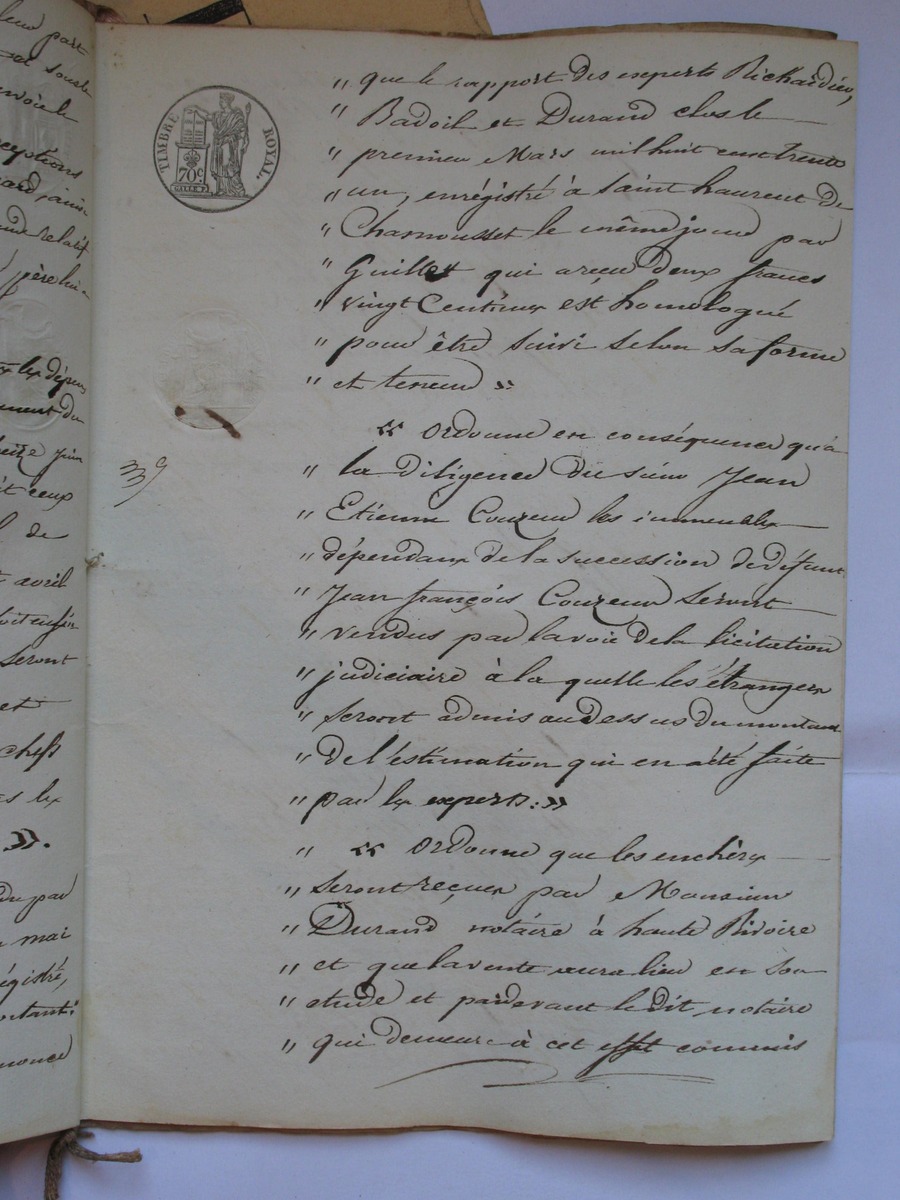 TIMBRE ROYAL.
70c.
3e
„ que le rapport des experts Richardier,
„ Badoil et Durand clos le
„ premier Mars mil huit cent trente
„ un, enrégistré à saint Laurent de
„ Chamousset le même jour par
„ Guillot qui a reçu deux francs
„ vingt Centimes est homologué
„ pour être suivi selon sa forme
„ et teneur »
« Ordonne en conséquence qu'à
„ la diligence du sieur Jean
„ Etienne Couzeur les immeubles
„ dépendans de la succession de défunt
„ Jean françois Couzeur seront
„ vendus par la voie de la licitation
„ judiciaire à la quelle les étrangers
„ seront admis au dessus du montant
„ de l'éstimation qui en a été faite
„ par les experts: »
„ « Ordonne que les enchères
„ seront reçues par Monsieur
„ Durand notaire à haute Rivoire
„ et que la vente aura lieu en son
„ etude et pardevant le dit notaire
„ qui demeure à cet effet commis
leur part
envoie le
père lui
les dépens
ement du
juin
it ceux
de
avril
seront
et
chefs
les
».
du par
mai
égistré,
nonce